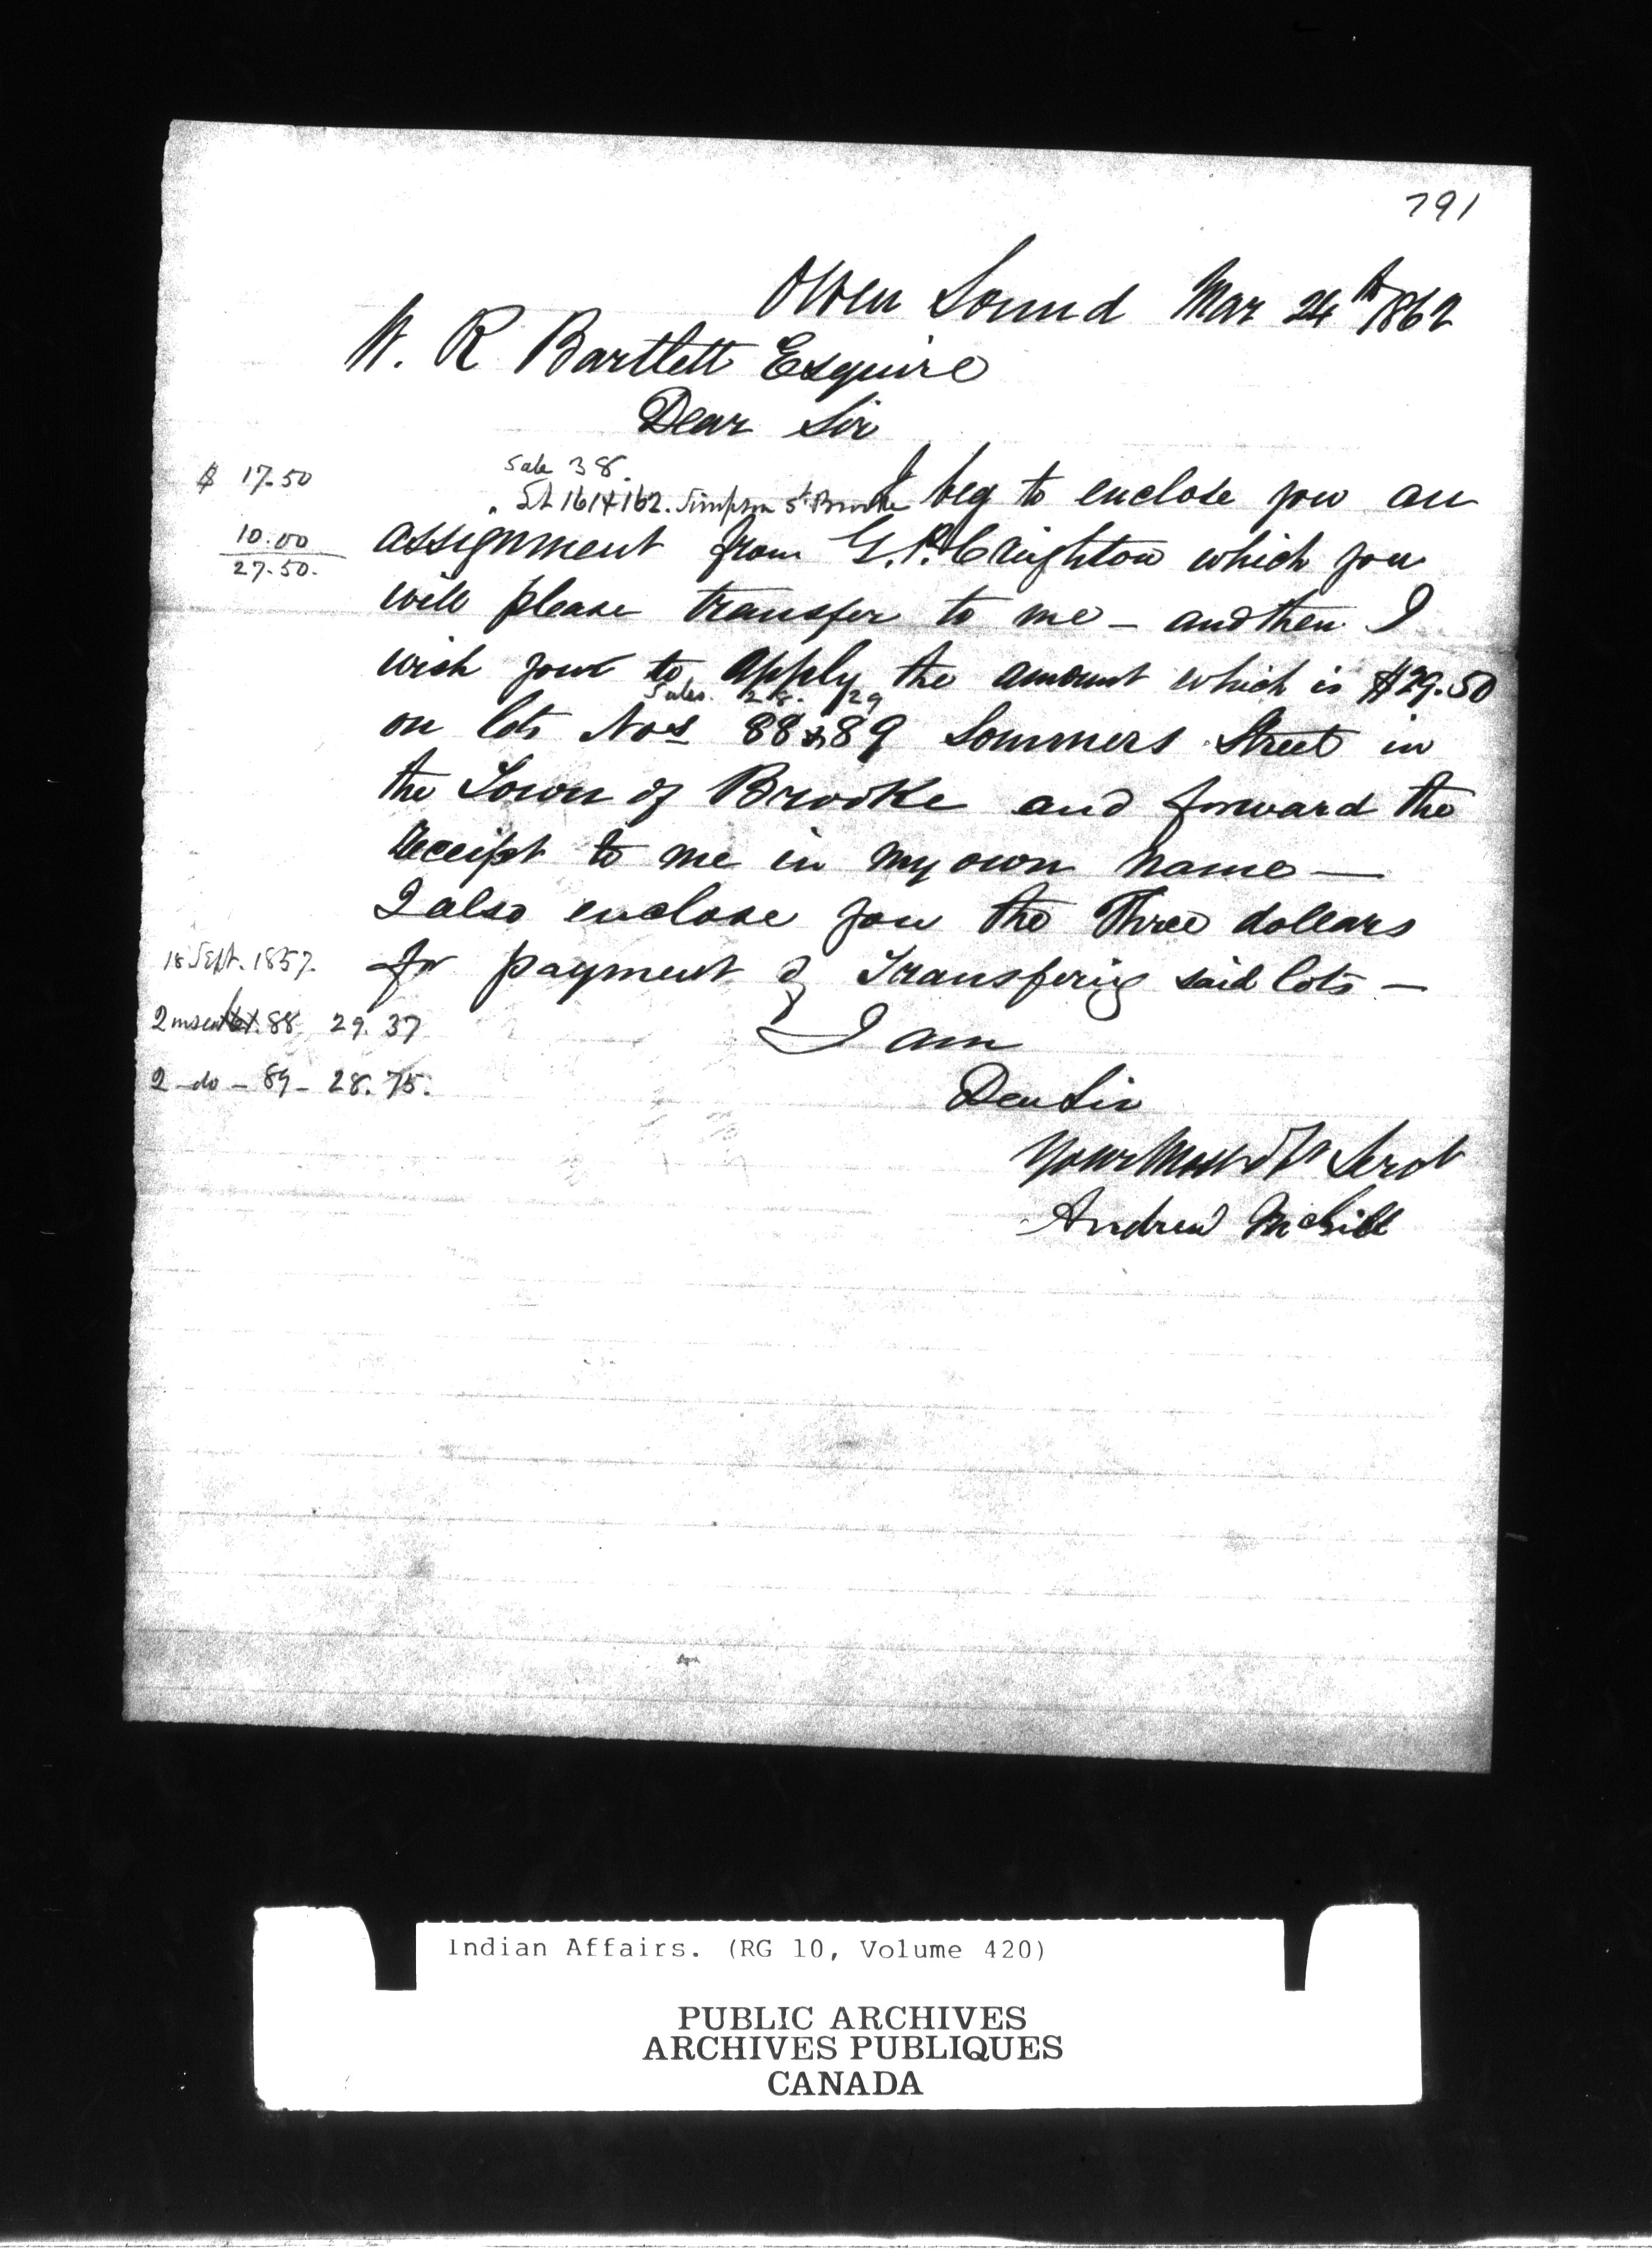 791
Owen Sound Mar 24th 1862
W. R Bartlett Esquire
Dear Sir
Sale 38.
$ 17.50
Lt 161 & 162. Simpson St Brooke
I beg to enclose you an
10.00
assignment from G. P. Creighton which you
27.50.
will please transfer to me — and then I
wish your to apply the amount which is $29.50
Sales. 28. 29
on lots Nos 88 & 89 Sommers Street in
the Town of Brooke and forward the
receipt to me in my own name —
I also enclose you the Three dollars
18 Sept. 1857.
for payment of Transfering said lots —
2 88 29.37
I am
2 - do - 89 - 28.75.
Dear Sir
Your Most Obt Servt
Andrew McGill
Indian Affairs. (RG 10, Volume 420)
PUBLIC ARCHIVES
ARCHIVES PUBLIQUES
CANADA